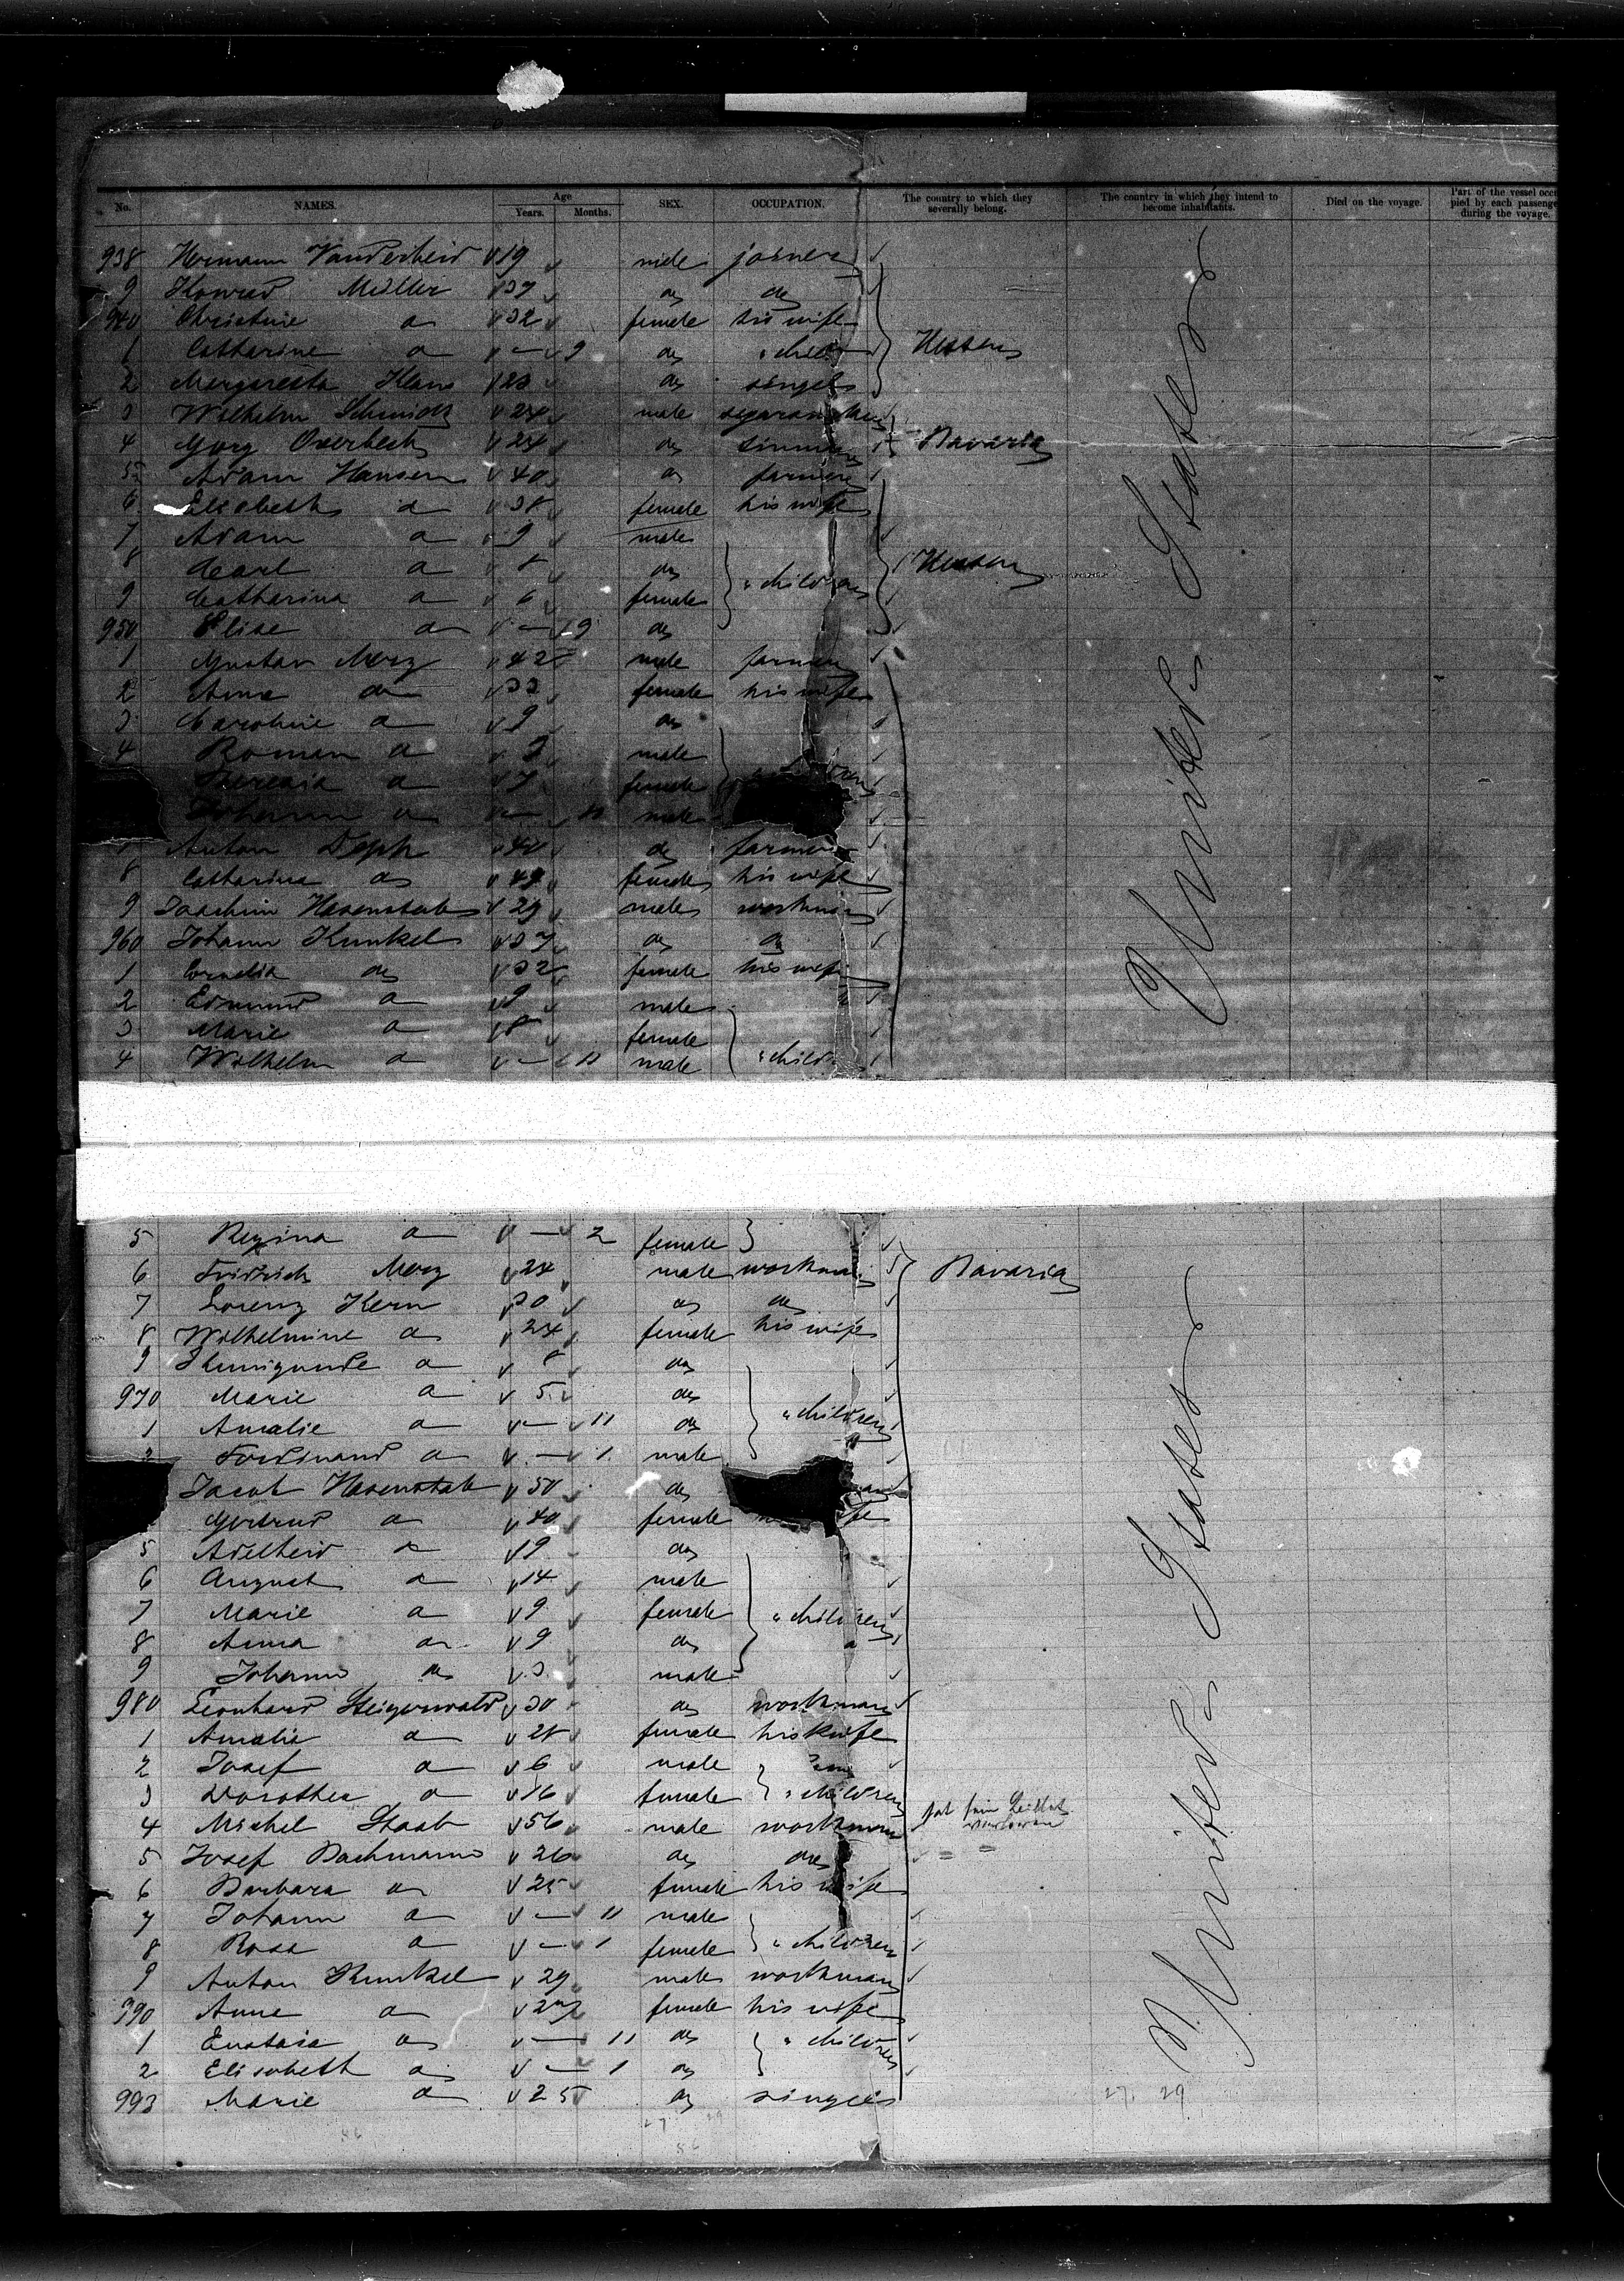 No. NAMES. Age Years. Months. SEX. OCCUPATION. The country to which they severally belong. The country in which they intend to become inhabitants. Died on the voyage. Part of the vessel occupied by each passenger during the voyage.
938 Hermann Vanderheid 19 male joiner
9 Konrad Müller 37 do do
940 Christine do 32 female his wife
1 Catharine do — 9 do " child Hessen
2 Margaretha Klaus 23 do single
3 Wilhelm Schmidt 24 male segarmaker
4 Georg Overbeck 24 do Bavaria
5 Adam Hansen 40 do farmer
6 Elisabeth do 38 female his wife
7 Adam do 9 male
8 Carl do 8 do " children Hessen
9 Catharina do 6 female
950 Elise do — 9 do
1 Gustav Merz 42 male farmer
2 Anna do 33 female his wife
3 Caroline do 9 do
4 Roman do 3 male
Theresia do 7 female
Johann do — 11 male
7 Anton Deph 40 do farmer
8 Catharina do 44 female his wife
9 Joachim Hasenstab 29 male workman
960 Johann Kunkel 37 do do
1 Cornelia do 32 female his wife
2 Edmund do 9 male
3 Marie do 8 female
4 Wilhelm do — 11 male " child
United States
5 Regina do — 2 female
6 Fridrich Merz 24 male workman Bavaria
7 Lorenz Kern 30 do do
8 Wilhelmine do 24 female his wife
9 Kunigunde do 8 do
970 Marie do 5 do
1 Amalie do — 11 do " children
2 Ferdinand do — 1 male
Jacob Hasenstab 50 do
Gertrud do 40 female
5 Adelheid do 19 do
6 August do 14 male
7 Marie do 9 female " children
8 Anna do 9 do
9 Johann do 3 male
980 Leonhard Steigerwald 30 do workman
1 Amalie do 28 female his wife
2 Josef do 6 male
3 Dorothea do 16 female " children
4 Michel Staab 56 male workman
5 Josef Bachmann 26 do do
6 Barbara do 25 female his wife
7 Johann do — 11 male
8 Rosa do — 1 female " children
9 Anton Kunkel 29 male workman
990 Anna do 27 female his wife
1 do — 11 do " children
2 Elisabeth do — 1 do
993 Marie do 25 do single
United States
27. 29